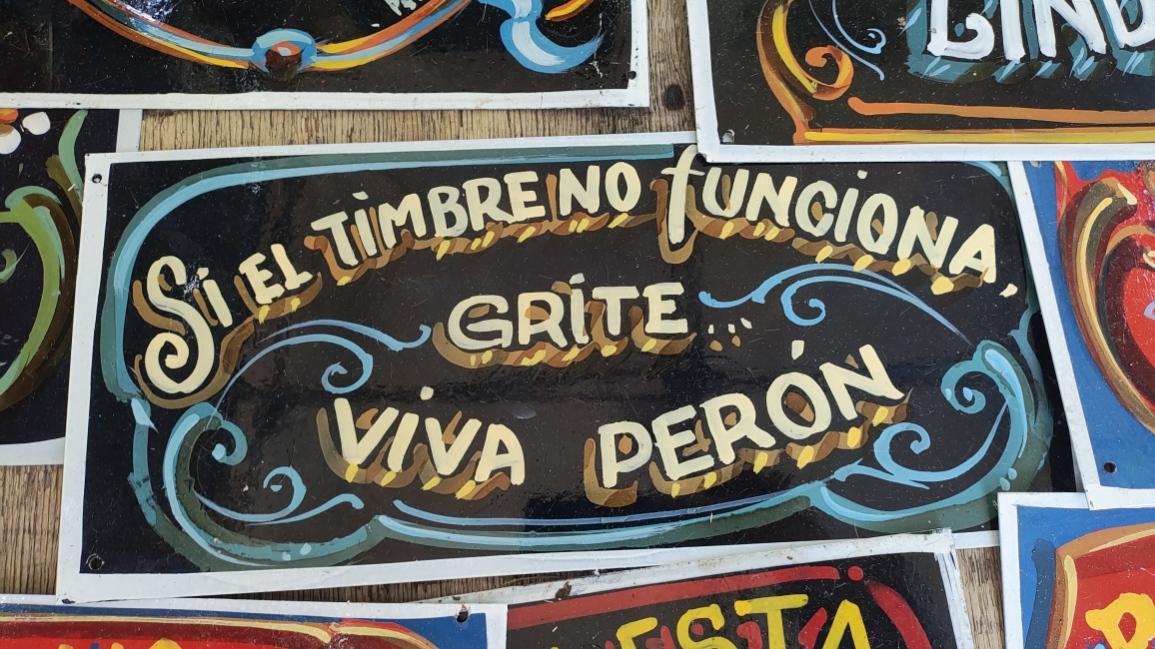 LIND
Si EL TiMBRE NO fUNCiONA,
GRiTE...
ViVA PERÓN
ESTA